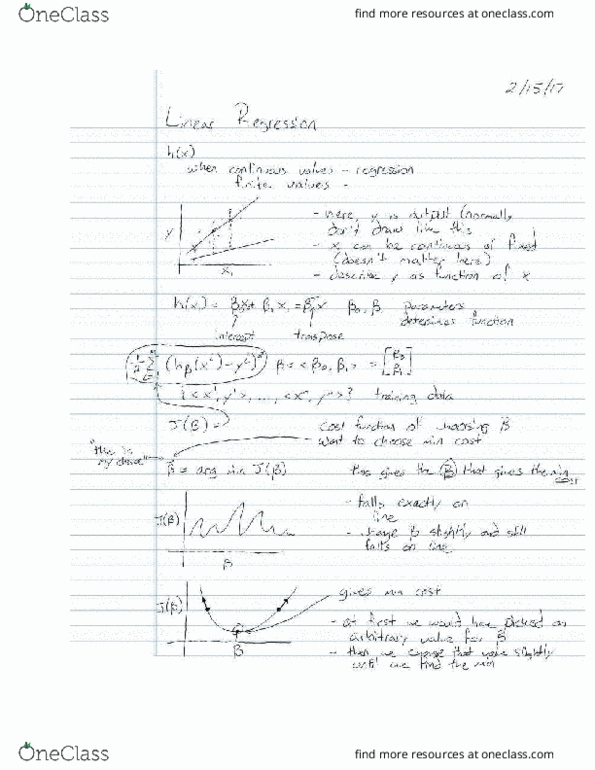 OneClass
find more resources at oneclass.com
2/15/17
Linear Regression
h(x)
when continuous values - regression
finite values -
- here, y is output (normally
don't draw like this
- x can be continuous or fixed
(doesn't matter here)
- describe y as function of x
y
x₁
h(x) = β₀x₀ + β₁x₁ = βᵀx β₀, β₁ parameters
determines function
intercept transpose
(hβ(xⁱ) - yⁱ)² β = <β₀, β₁> = [β₀ β₁]
{<x¹, y¹>, ..., <xⁿ, yⁿ>} training data
J(β) = cost function of choosing β
want to choose min cost
"this is
my choice"
β = arg min J(β) this gives the β that gives the min
cost
- falls exactly on
line
J(β)
- change β slightly and still
falls on line
β
gives min cost
J(β)
- at first we would have picked an
arbitrary value for β
β
- then we change that value slightly
until we find the min
OneClass
find more resources at oneclass.com